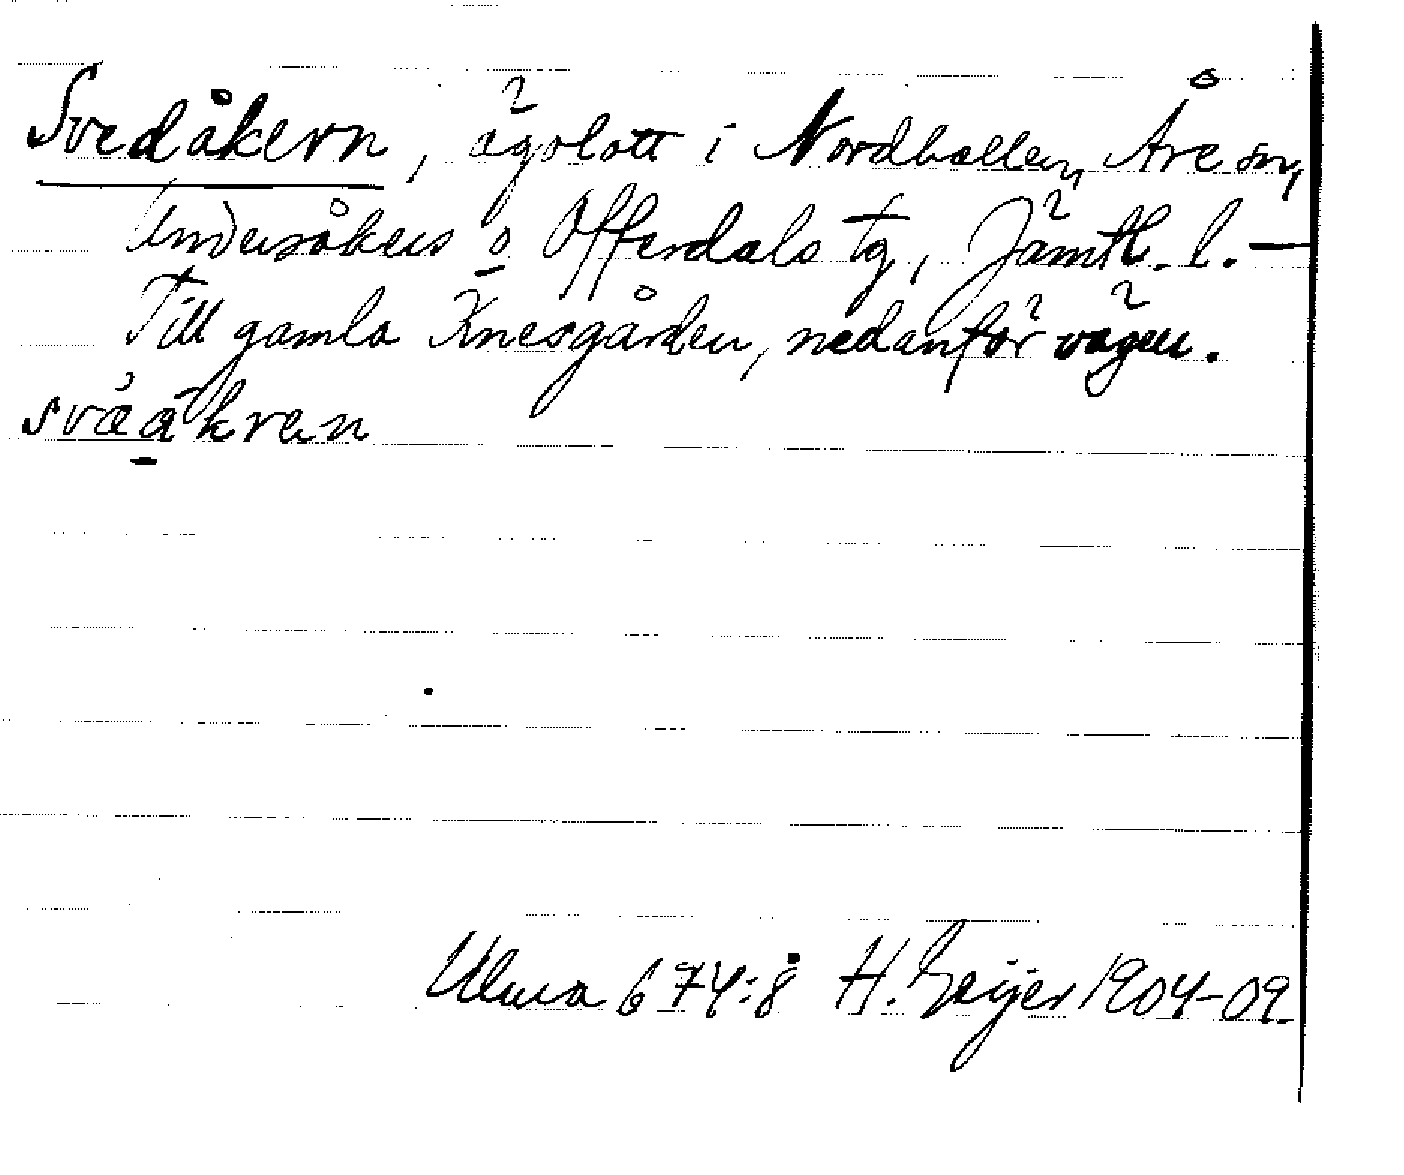 Svedåkern, ägolott i Nordhallen, Åre sn,
Undersåkers o Offerdals tg, Jämtl. l. —
Till gamla Knesgården, nedanför vägen.
svæákran
Ulma 674:8 H. Geijer 1904-09.